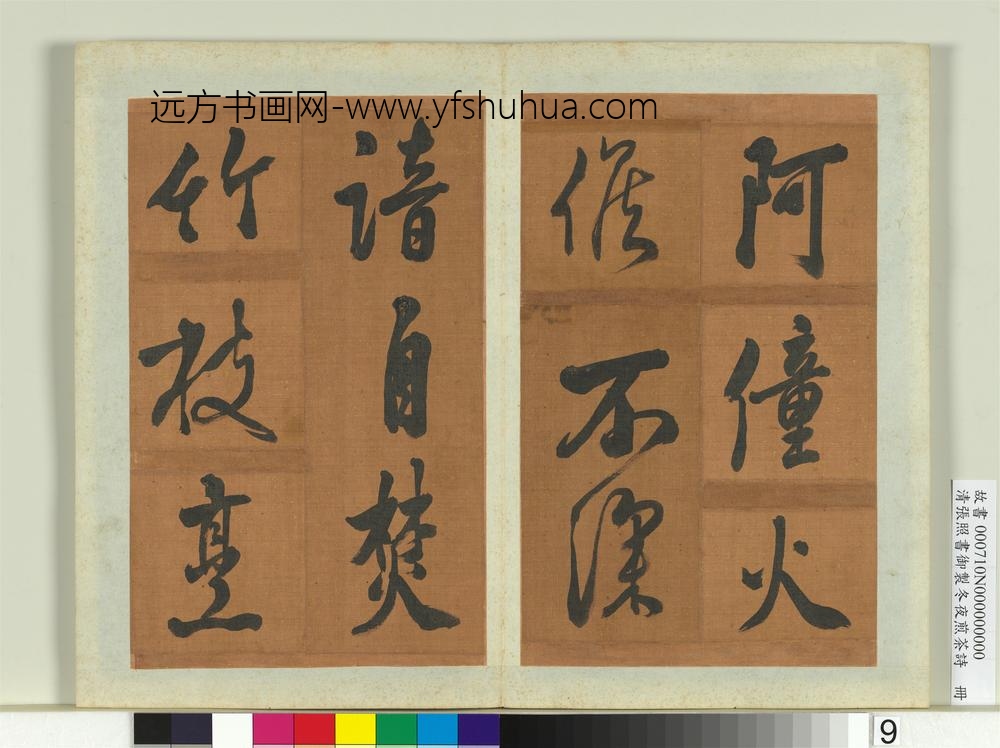 远方书画网-www.yfshuhua.com
阿僮火
候不深
諳自焚
竹枝烹
故書 000710N000000000
清張照書御製冬夜煎茶詩 冊
9